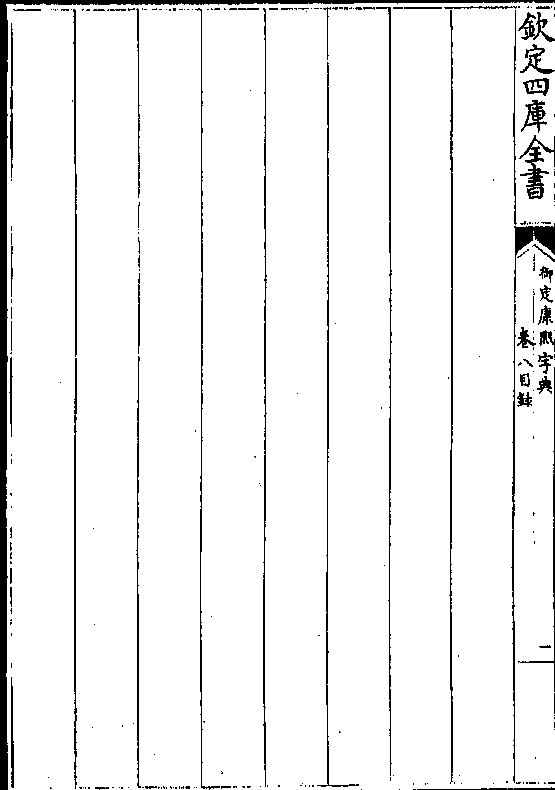 欽定四庫全書
御定康熙字典
卷八目錄
二